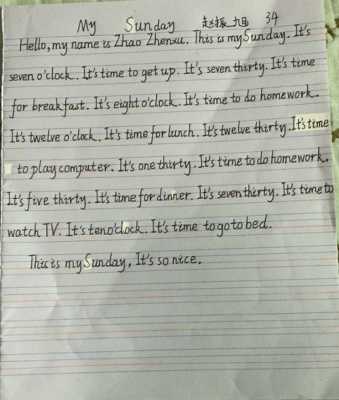 My Sunday 赵振旭 34
Hello, my name is Zhao Zhenxu. This is my Sunday. It's
seven o'clock. It's time to get up. It's seven thirty. It's time
for breakfast. It's eight o'clock. It's time to do homework.
It's twelve o'clock. It's time for lunch. It's twelve thirty. It's time
to play computer. It's one thirty. It's time to do homework.
It's five thirty. It's time for dinner. It's seven thirty. It's time to
watch TV. It's ten o'clock. It's time to go to bed.
This is my Sunday, It's so nice.